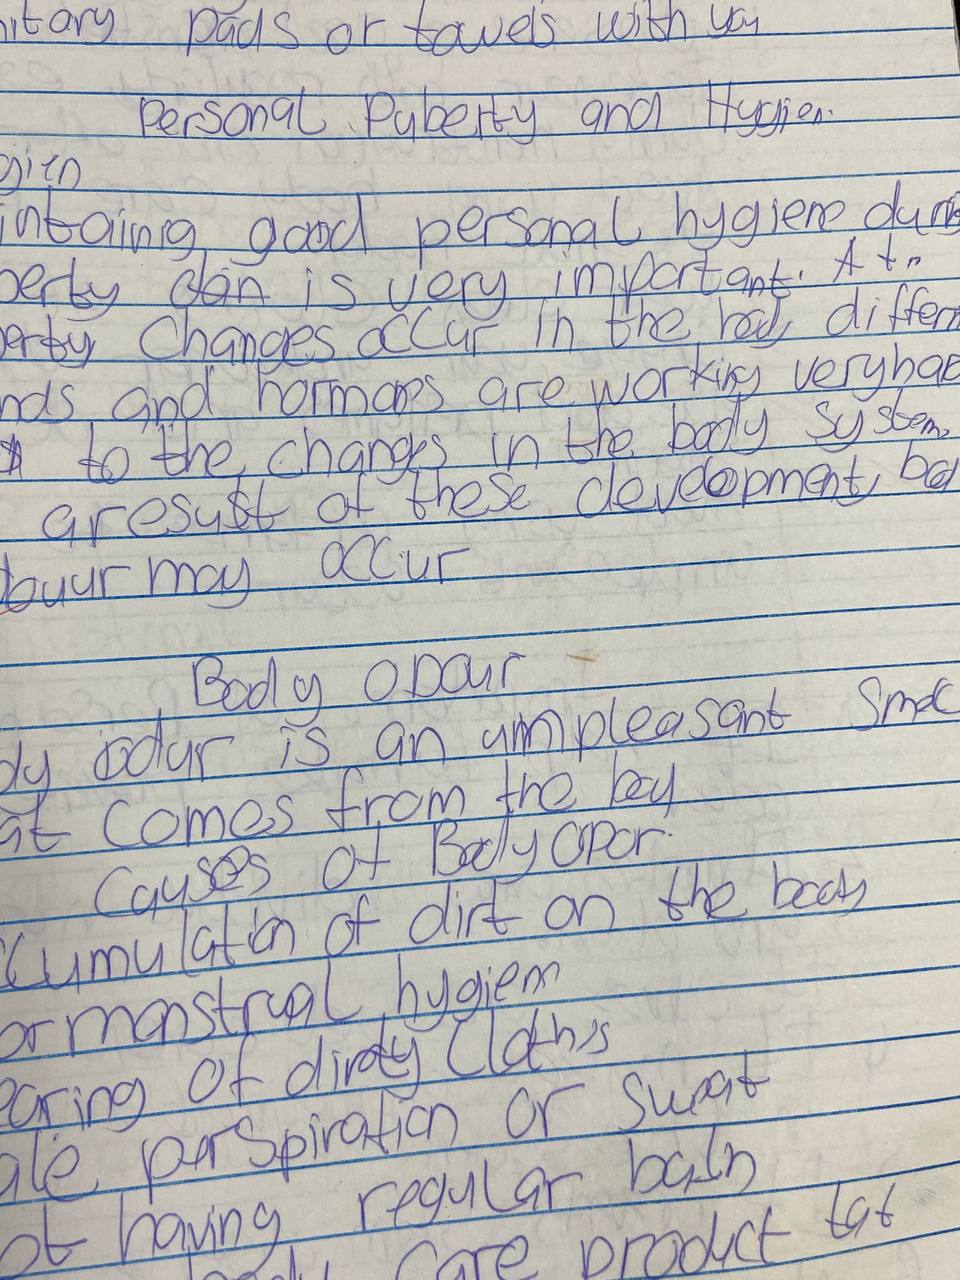 itary pads or towels with you
Personal Puberty and Hygien.
gien
intaining good personal hygiene during
berty is very important. At
erty changes occur in the body differen
nds and hormones are working veryhard
to the changes in the body system,
aresust of these development, bod
may occur
Body opour
dy odur is an umpleasant smel
at comes from the body
Causes of Body opor.
cumulation of dirt on the body
or menstrual hygien
earing of dirty cloths
ale perspiration or sweat
ot having regular bath
body care product tat